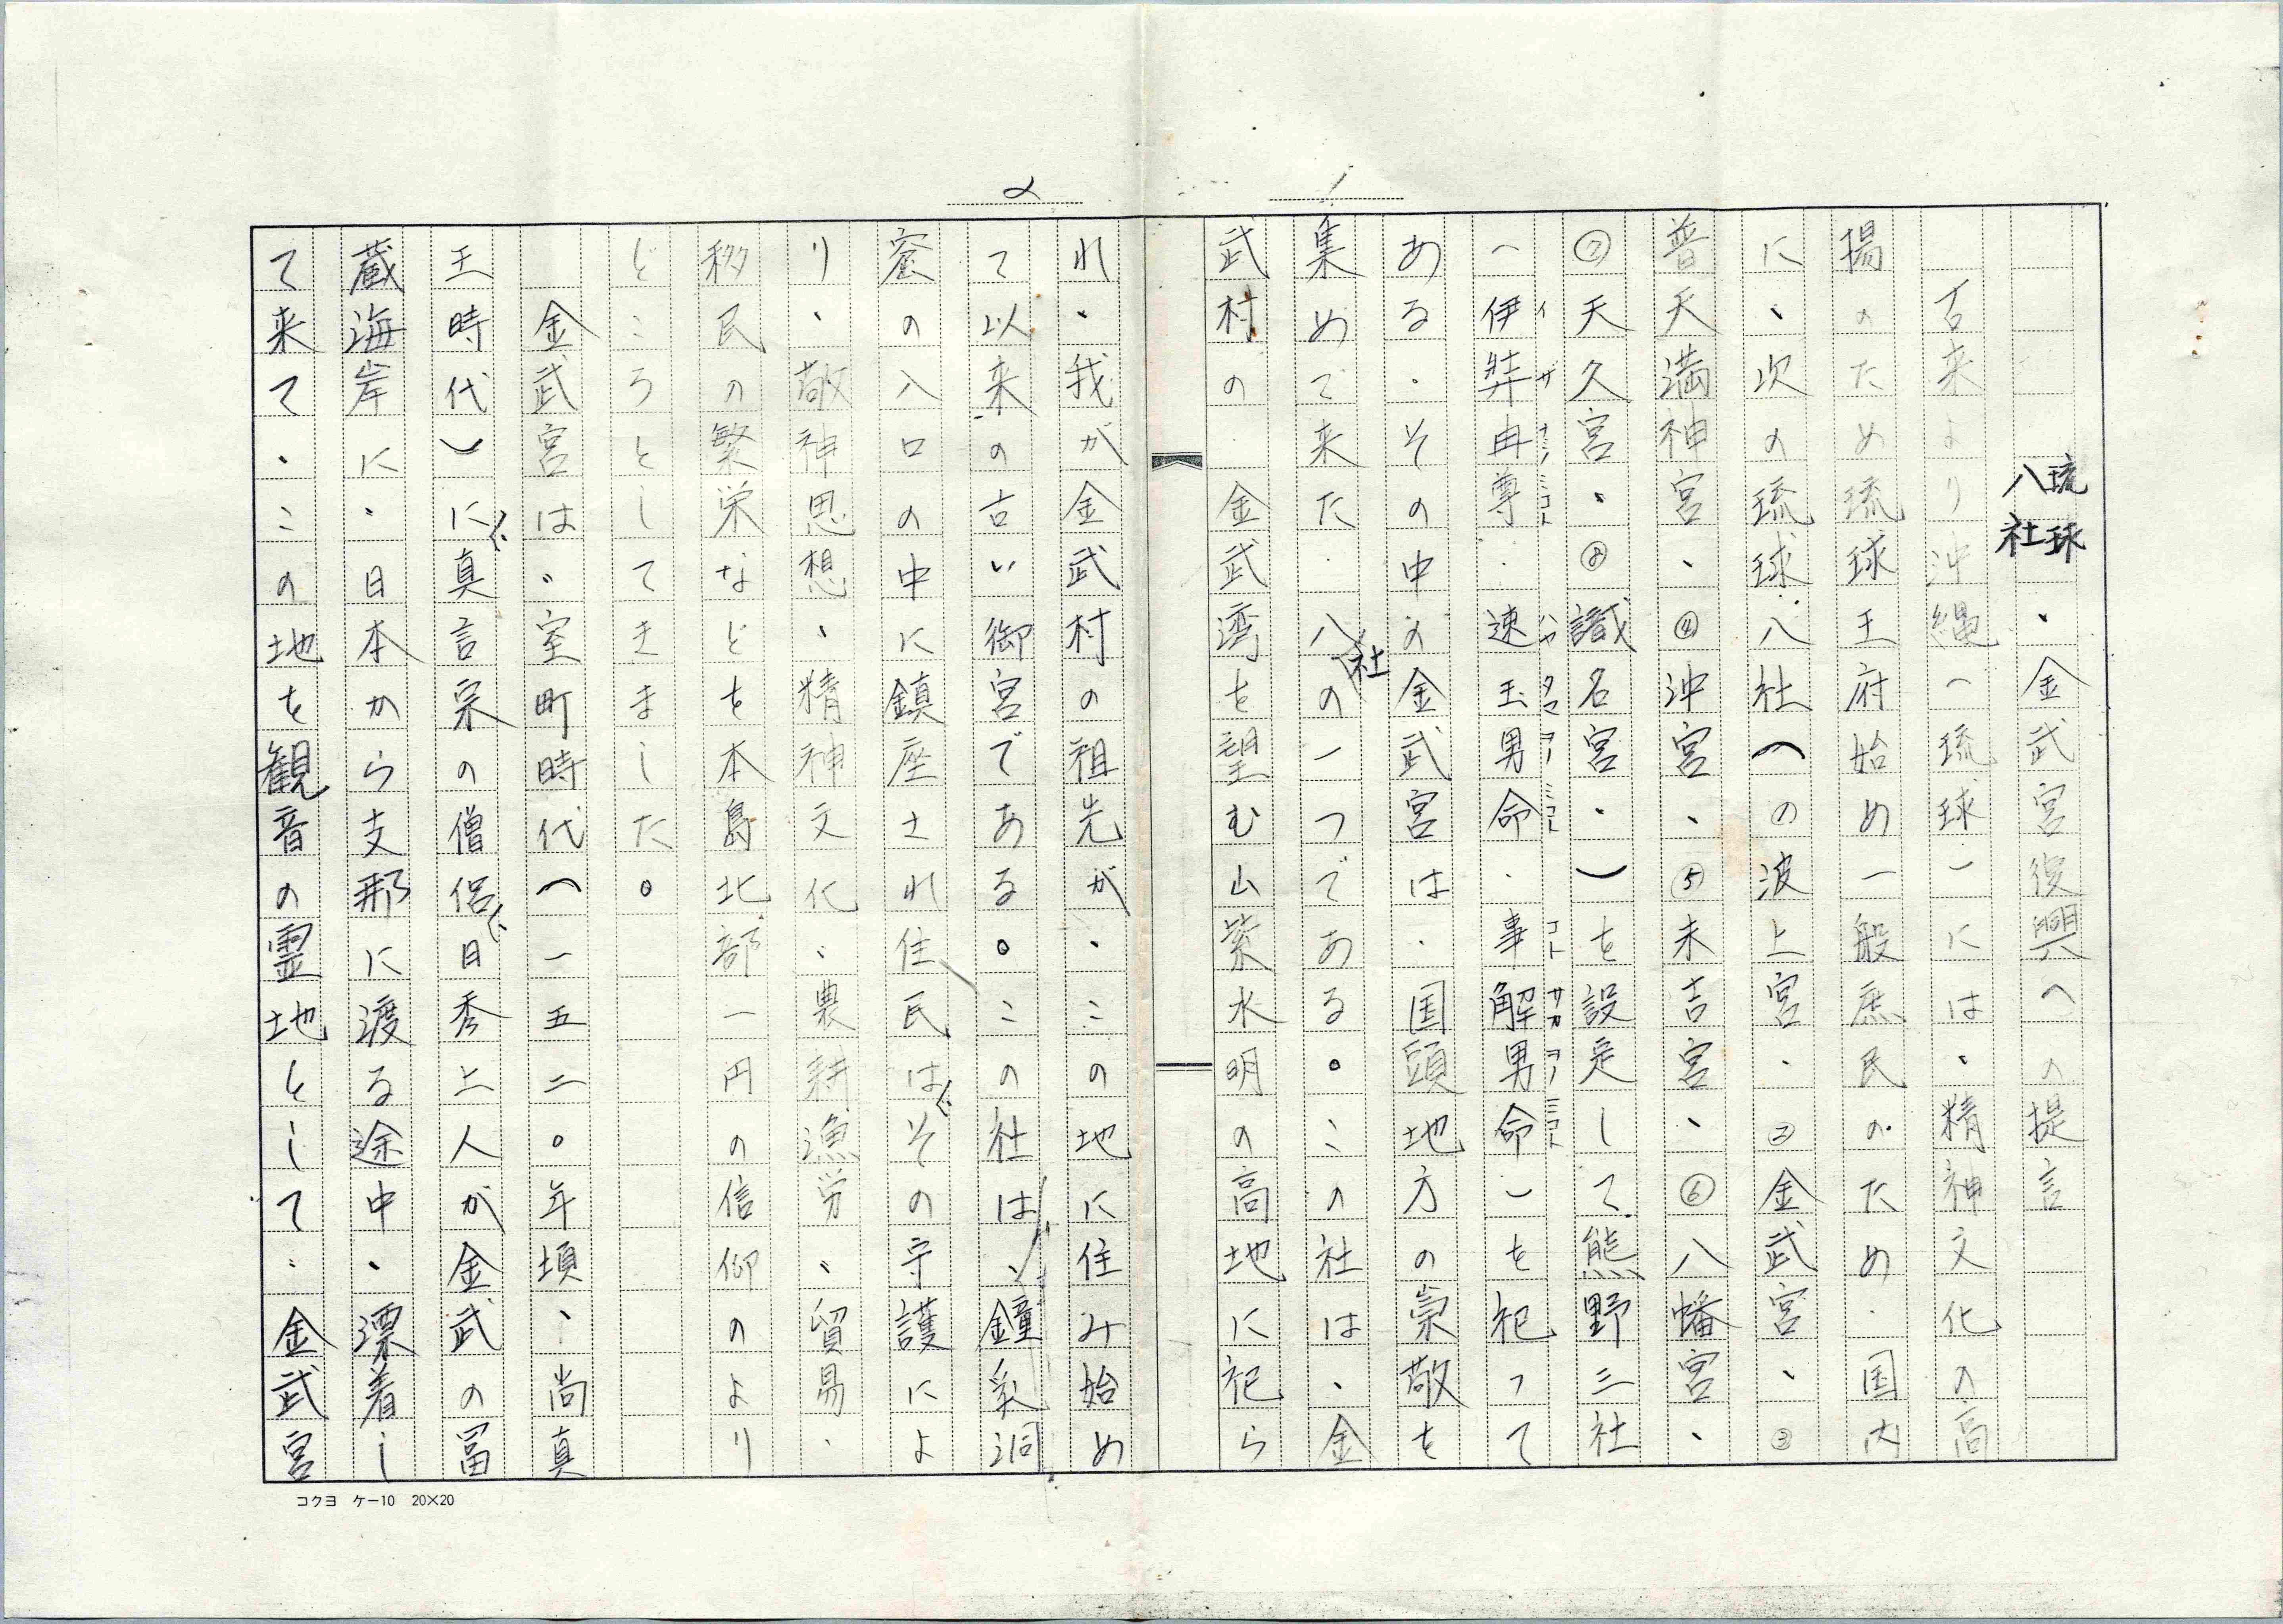 1
琉球八社・金武宮復興への提言
古来より沖縄(琉球)には、精神文化の高
揚のため琉球王府始め一般庶民のため、国内
に、次の琉球八社(の波上宮、②金武宮、③
普天満神宮、④沖宮、⑤末吉宮、⑥八幡宮、
⑦天久宮、⑧識名宮、)を設定して熊野三社
(伊弉冉尊、速玉男命、事解男命)を祀って
イザナミノミコト ハヤタマヲノミコト コトサカヲノミコト
ある、その中の金武宮は、国頭地方の崇敬を
集めて来た、八社の一つである。この社は、金
武村の 金武湾を望む山紫水明の高地に祀ら
2
れ、我が金武村の祖先が、この地に住み始め
て以来の古い御宮である。この社は、鐘乳洞
窟の入口の中に鎮座され住民はその守護によ
り、敬神思想、精神文化、農耕漁労、貿易、
移民の繁栄などを本島北部一円の信仰のより
どころとしてきました。
金武宮は、室町時代(一五二〇年頃、尚真
王時代)に真言宗の僧侶日秀上人が金武の冨
蔵海岸に、日本から支那に渡る途中、漂着し
て来て、この地を観音の霊地として、金武宮
コクヨ ケー10 20×20